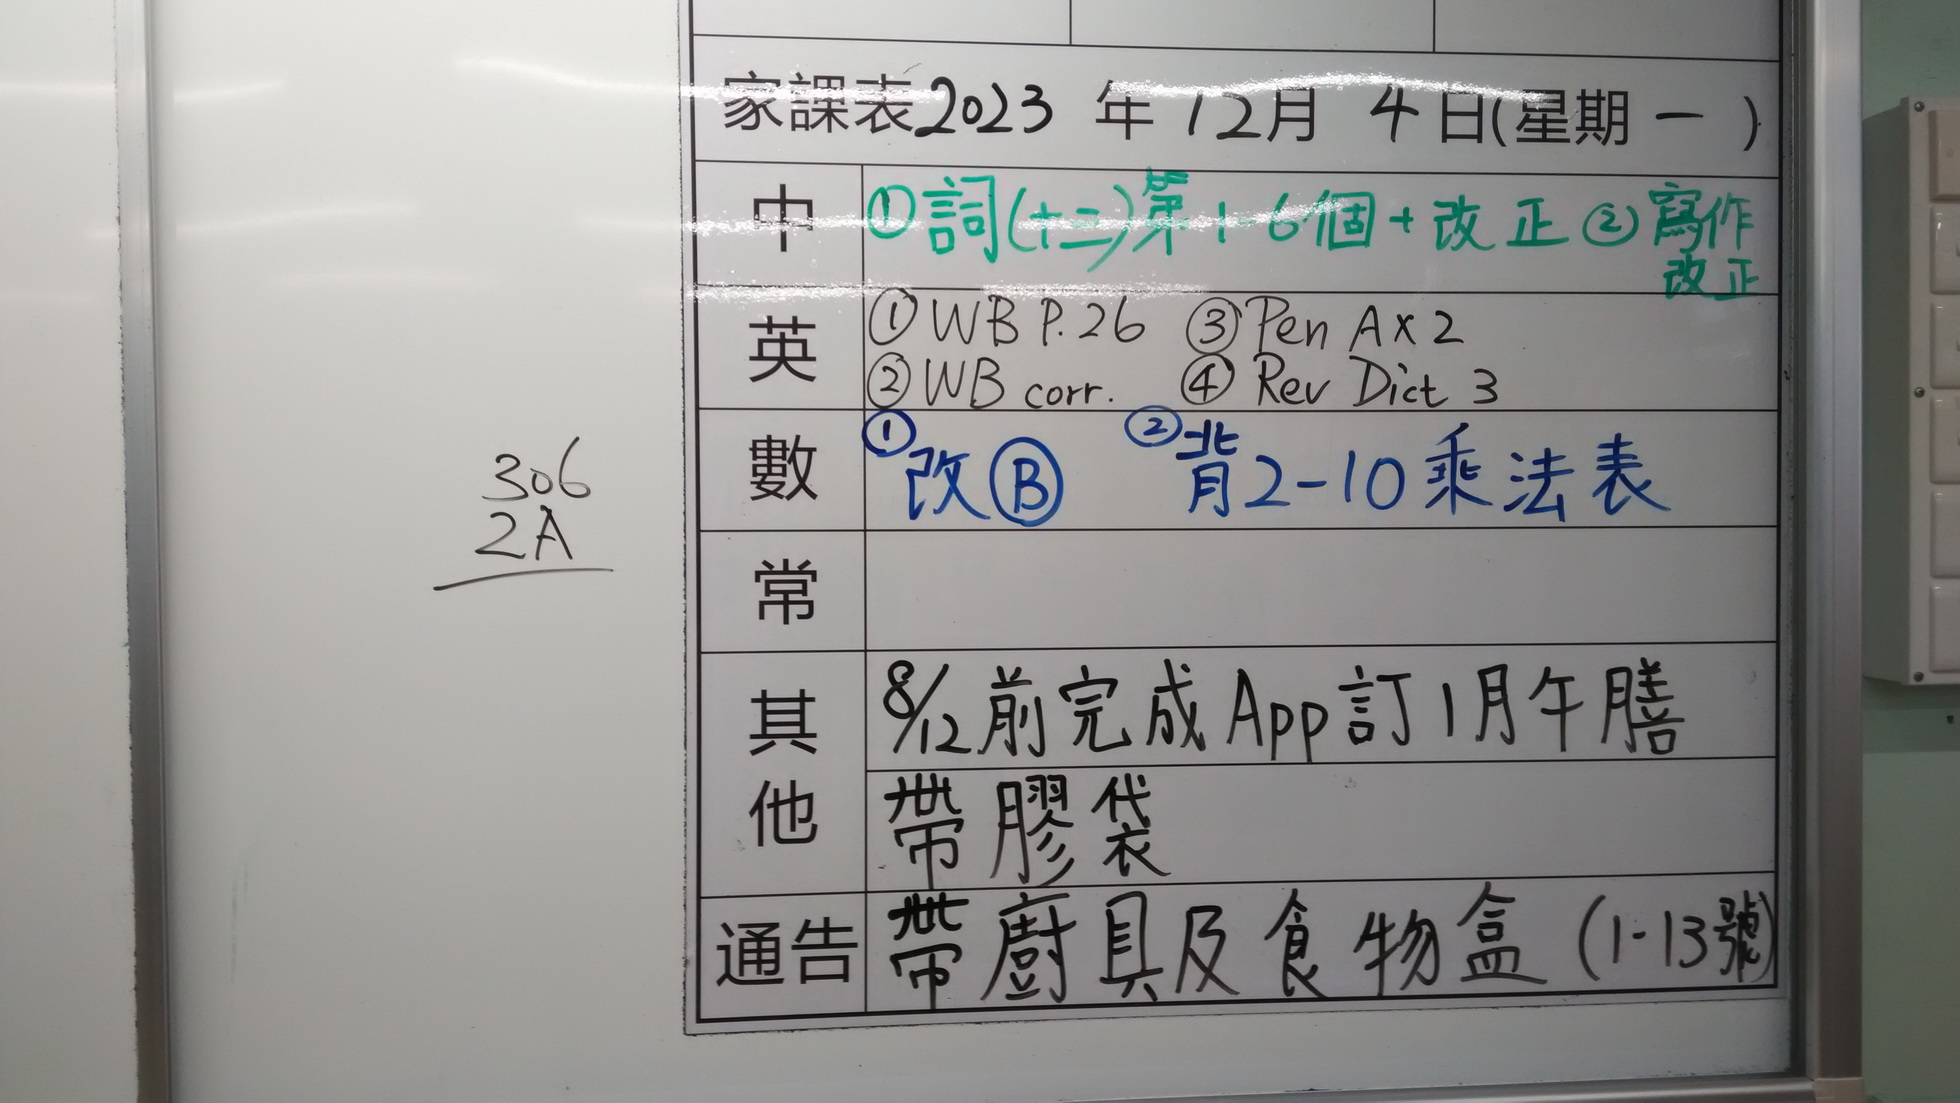 家課表2023 年 12月 4日(星期一 )
中 ①詞(十二)第1-6個+改正②寫作
改正
英 ①WB P.26 ③Pen A×2
②WB corr. ④Rev Dict 3
數 ①改Ⓑ ②背2-10乘法表
306
2A
常
其他 8/12前完成App訂1月午膳
帶膠袋
通告 帶廚具及食物盒(1-13號)